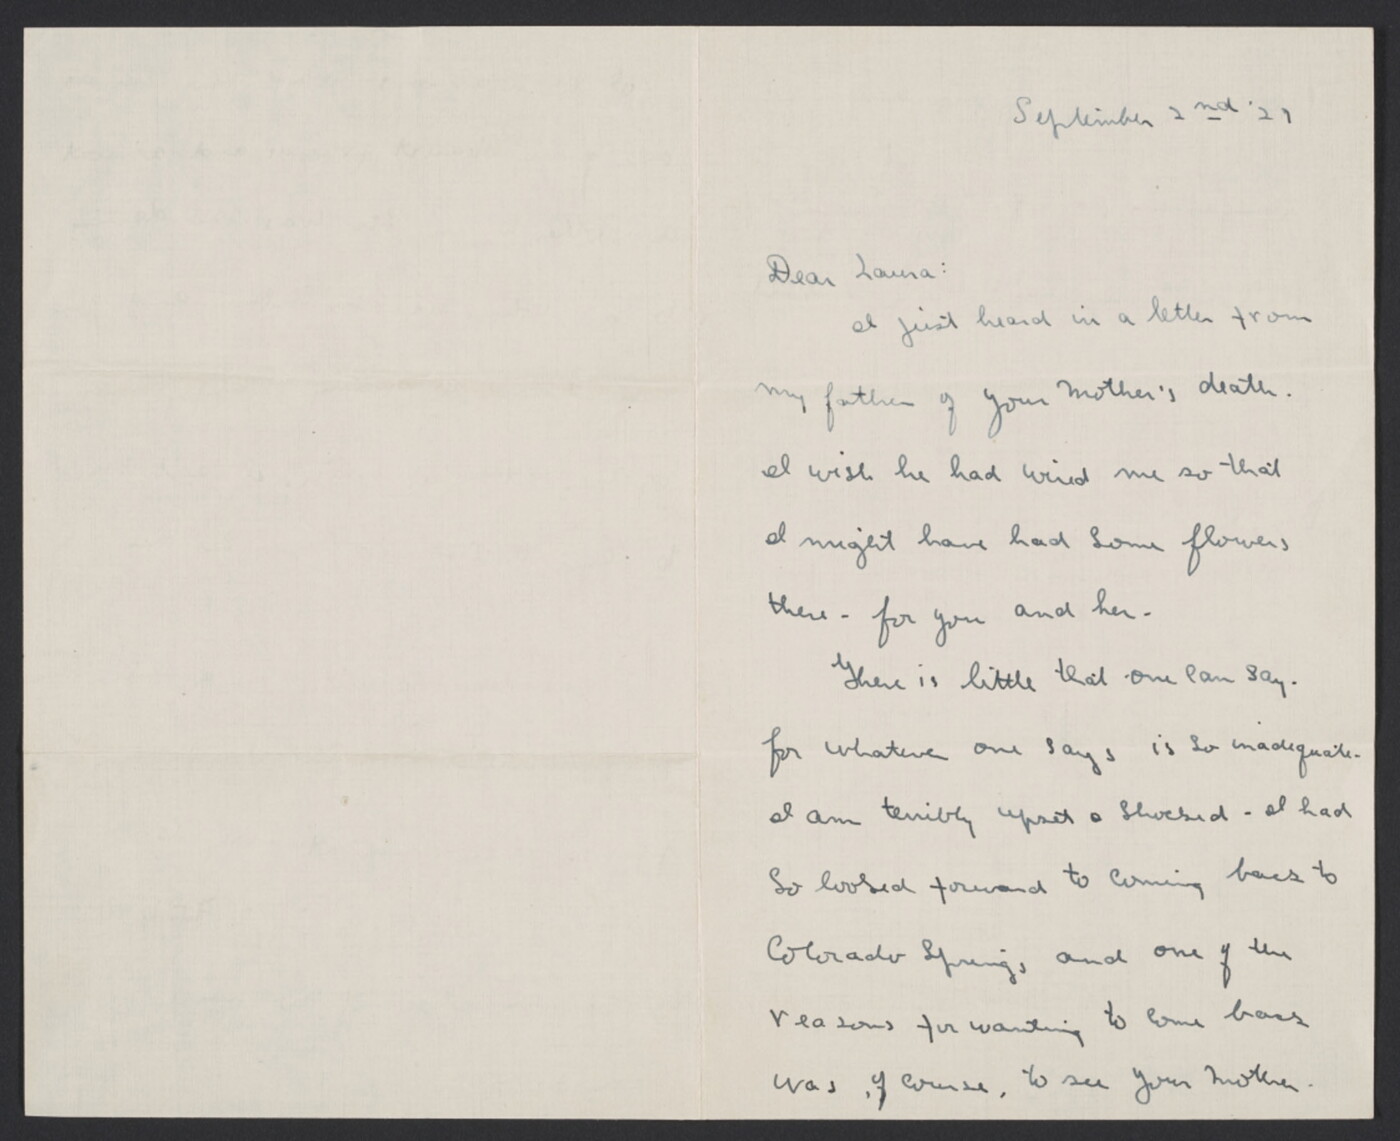 September 2nd '27
Dear Laura:
I just heard in a letter from
my father of your Mother's death.
I wish he had wired me so that
I might have had some flowers
there - for you and her -
There is little that one can say.
for whatever one says is so inadequate.
I am terribly upset & shocked - I had
so looked forward to coming back to
Colorado Springs and one of the
reasons for wanting to come back
was, of course, to see your mother.